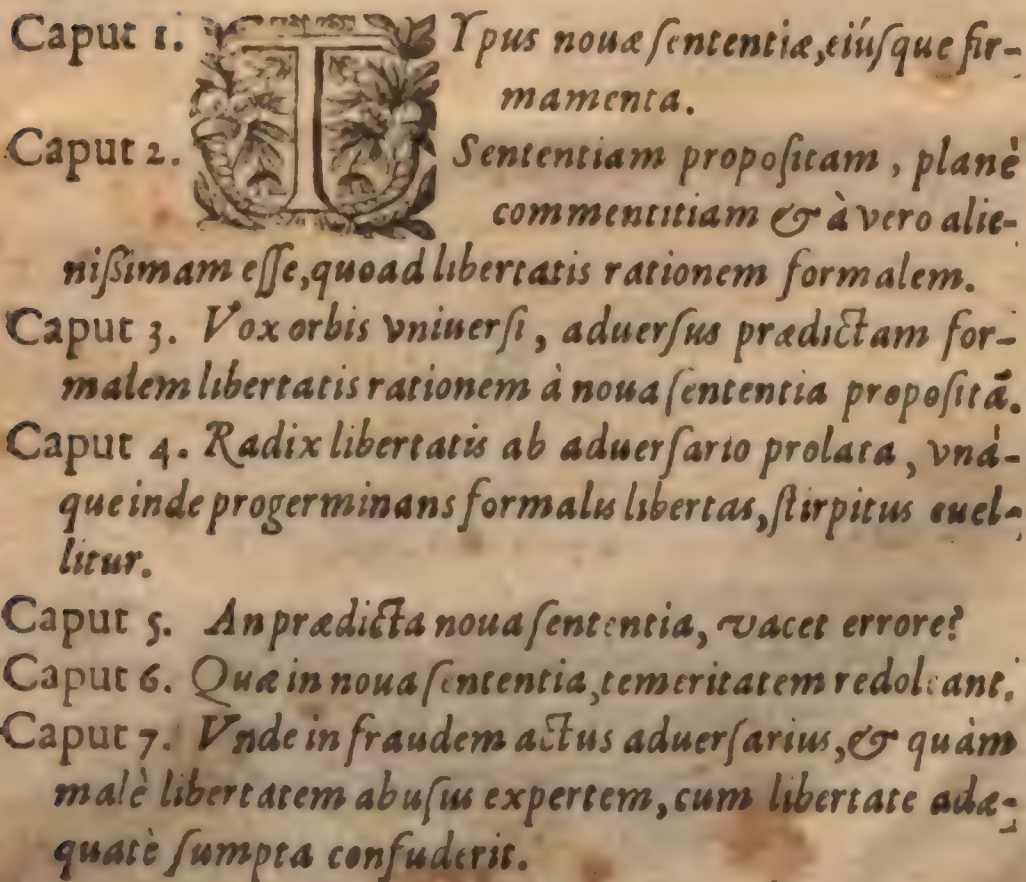 Caput 1. TYpus nouæ ſententiæ, eiúſque fir-
mamenta.
Caput 2. Sententiam propoſitam, planè
commentitiam & à vero alie-
niſsimam eſſe, quoad libertatis rationem formalem.
Caput 3. Vox orbis vniuerſi, aduerſus prædictam for-
malem libertatis rationem à noua ſententia propoſitā.
Caput 4. Radix libertatis ab aduerſario prolata, vná-
que inde progerminans formalis libertas, ſtirpitus euel-
litur.
Caput 5. An prædicta noua ſententia, vacet errore?
Caput 6. Quæ in noua ſententia, temeritatem redoleant.
Caput 7. Vnde in fraudem actus aduerſarius, & quàm
malè libertatem abuſus expertem, cum libertate adæ-
quatè ſumpta confuderit.